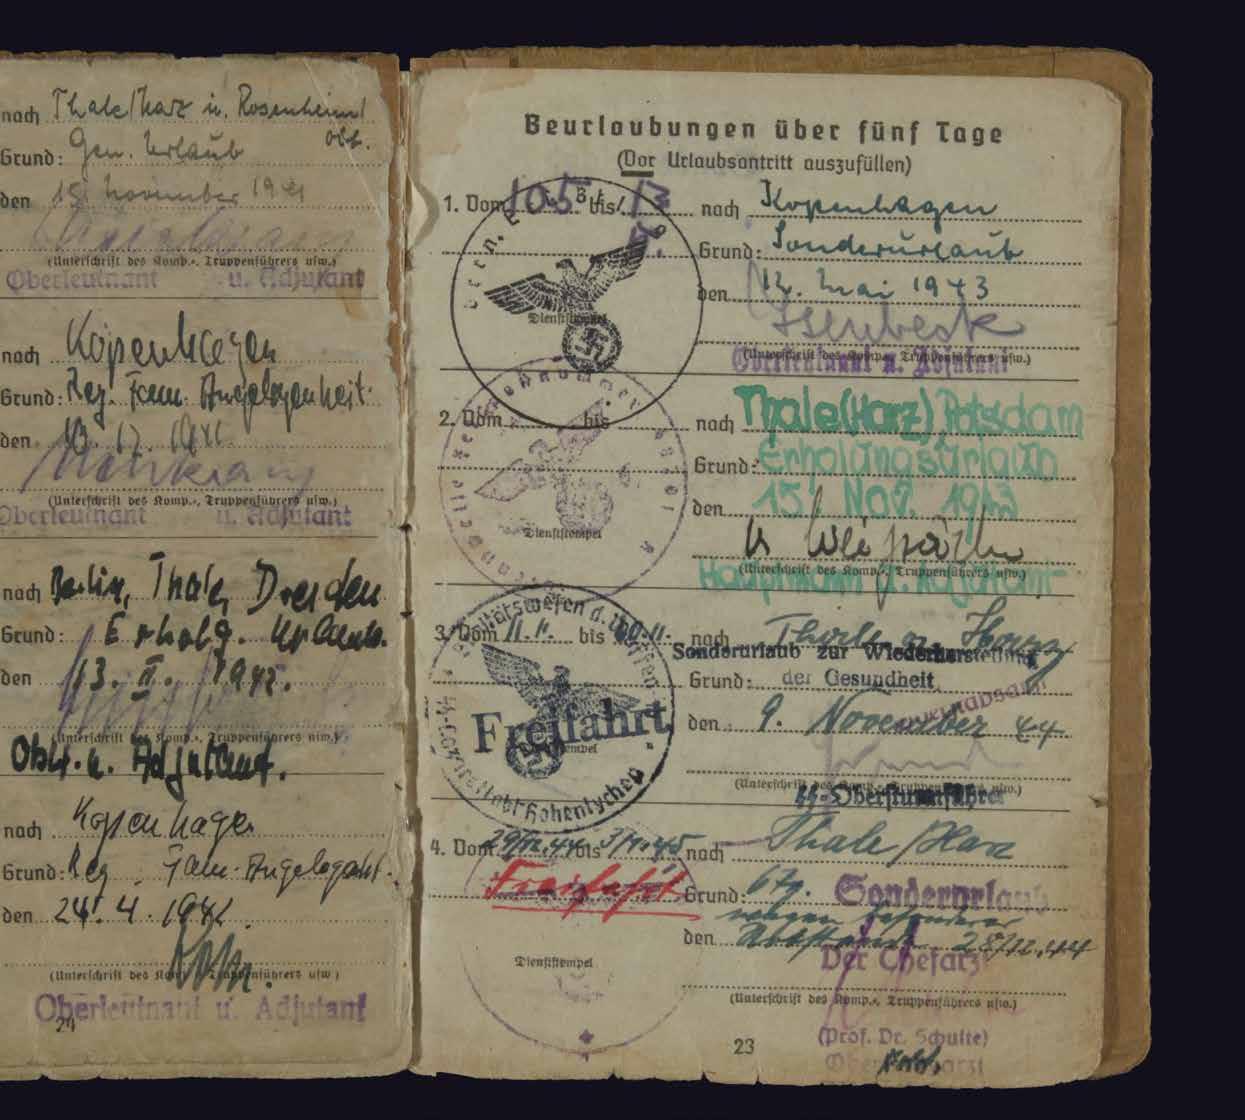 nach Thale/Harz u. Rosenheim/
Obb.
Grund: Gen. Urlaub
den 15. November 1941
(Unterschrift des Komp.-, Truppenführers usw.)
Oberleutnant u. Adjutant
nach Kopenhagen
Grund: Reg. Fam. Angelegenheit.
den
(Unterschrift des Komp.-, Truppenführers usw.)
Oberleutnant u. Adjutant
nach Berlin, Thale, Dresden
Grund: Erholg. Urlaub.
den 13. II. 1942.
(Unterschrift des Komp.-, Truppenführers usw.)
Oblt. u. Adjutant.
nach Kopenhagen
Grund: Reg. Fam. Angelegenht.
den 24. 4. 1942.
(Unterschrift des Komp.-, Truppenführers usw.)
Oberleutnant u. Adjutant
Beurlaubungen über fünf Tage
(Vor Urlaubsantritt auszufüllen)
1. Vom bis nach Kopenhagen
Grund: Sonderurlaub
den 12. Mai 1943
Dienststempel
(Unterschrift des Komp.-, Truppenführers usw.)
Oberleutnant u. Adjutant
2. Vom bis nach Thale (Harz) Potsdam
Grund: Erholungsurlaub
den 15. Nov. 1943
Dienststempel
(Unterschrift des Komp.-, Truppenführers usw.)
Hauptmann u. Adjutant
3. Vom 11.11. bis 30.11. nach Thale a. Harz
Sonderurlaub zur Wiederherstellung
Grund: der Gesundheit
den 9. November 44
Freifahrt
Hohenlychen
(Unterschrift des Komp.-, Truppenführers usw.)
SS-Obersturmführer
4. Vom 29/12.44 bis 3/1.45 nach Thale/Harz
Freifahrt
Grund: Sonderurlaub
wegen besonderer
den 28/12.44
Der Chefarzt
Dienststempel
(Unterschrift des Komp.-, Truppenführers usw.)
(Prof. Dr. Schulte)
23